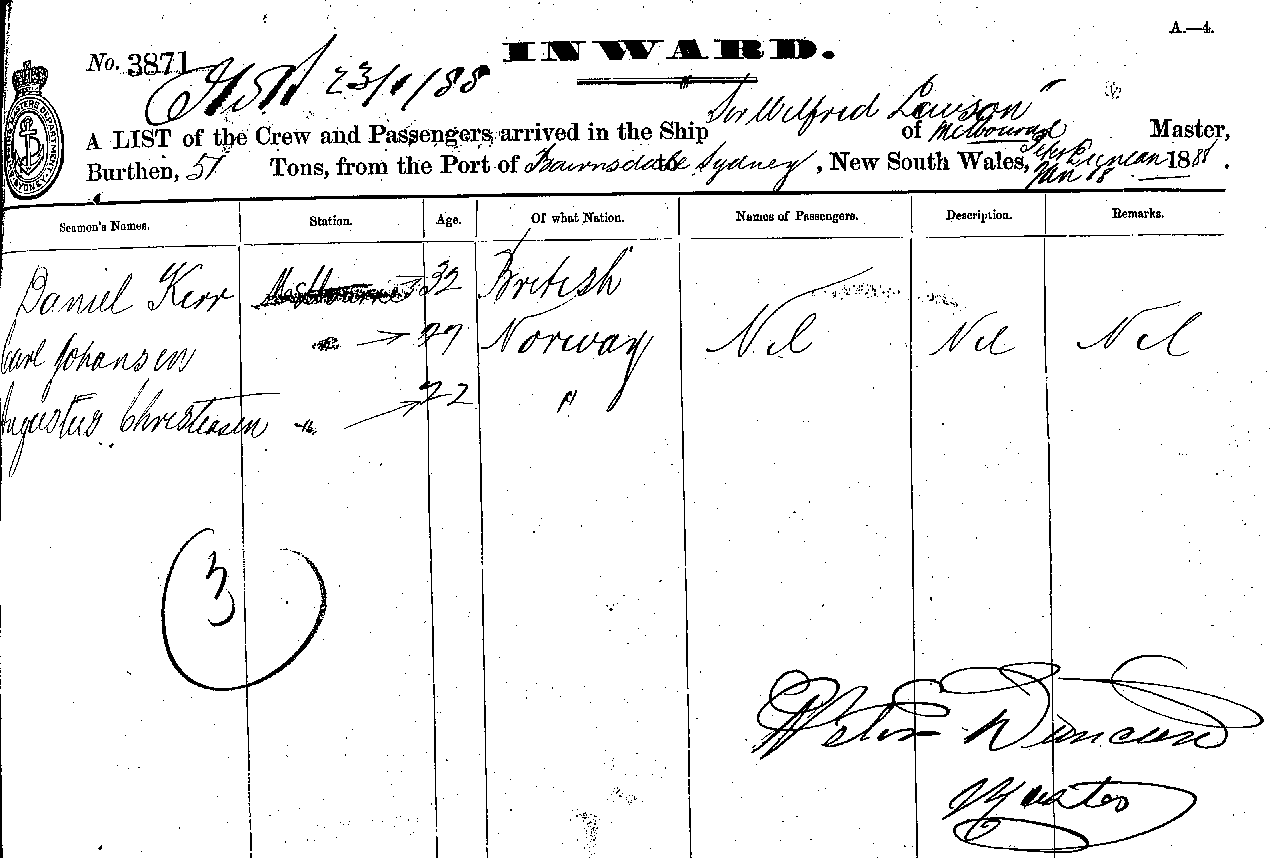 A.—4.
INWARD.
No. 3871
23/1/88
Sir Wilfred Lawson"
A LIST of the Crew and Passengers arrived in the Ship of Melbourne Master,
Peter Duncan
Burthen, 51 Tons, from the Port of Bairnsdale to Sydney, New South Wales, Jan 18 1888.
Seamen's Names. Station. Age. Of what Nation. Names of Passengers. Description. Remarks.
Daniel Kerr 32 British
Carl Johansen 27 Norway Nil Nil Nil
Augustus Christensen 22 "
3
Peter Duncan
Master